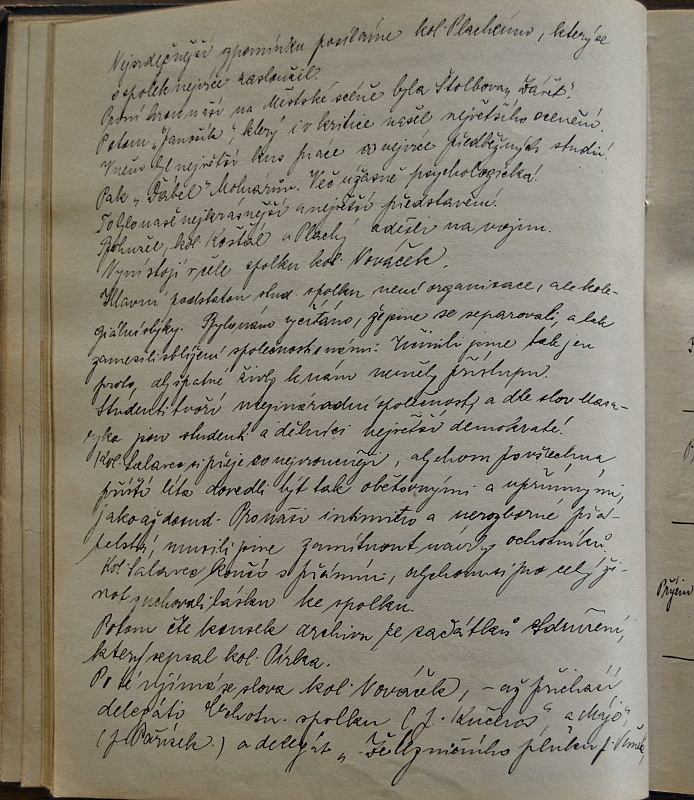 Nejsrdečnější vzpomínku posíláme kol. Plachému, který se
o spolek nejvíce zasloužil.
První hrou naší na Městské scéně byla Štolbova „Závěť".
Potom „Janošík", který i v kritice našel největšího ocenění.
V něm byl největší kus práce a nejvíce předběžných studií.
Pak „Ďábel" Molnárův. Věc úžasně psychologická.
To bylo naše nejkrásnější a největší představení.
Bohužel, kol. Košťál a Plachý odešli na vojnu.
Nyní stojí v čele spolku kol. Nováček.
Hlavní podstatou stud. spolku není organisace, ale kole-
giální styky. Bylo nám vyčítáno, že jsme se separovali, a tak
zamezili sblížení společnosti s námi. Učinili jsme tak jen
proto, aby špatné živly k nám neměly přístupu.
Studenti tvoří mezinárodní společnost, a dle slov Masa-
ryka jsou studenti a dělníci největší demokraté!
Kol. Salavec si přeje co nejvroucněji, abychom po všechna
příští léta dovedli být tak obětavými a upřímnými,
jako až dosud. Pro naši intimitu a nerozborné přá-
telství, musili jsme zamítnout návrhy ochotníků.
Kol. Salavec končí s přáními, abychom si pro celý ži-
vot zachovali lásku ke spolku.
Potom čte kousek archivu ze začátků Sdružení,
který sepsal kol. Pirka.
Poté ujímá se slova kol. Nováček, – až přichází
delegáti Ochotn. spolku (J. Kučera" a „Máje"
(p. Pařísek.) a delegát „Železničního pluku p.
Příjem